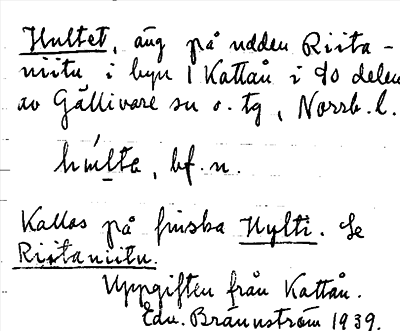 Hultet, äng på udden Riita-
niitu i byn Kattån i sö delen
av Gällivare sn o. tg, Norrb. l.
hu̍lta, bf. n.
Kallas på finska Hylti. Se
Riitaniitu.
Uppgiften från Kattån.
Edv. Brännström 1939.